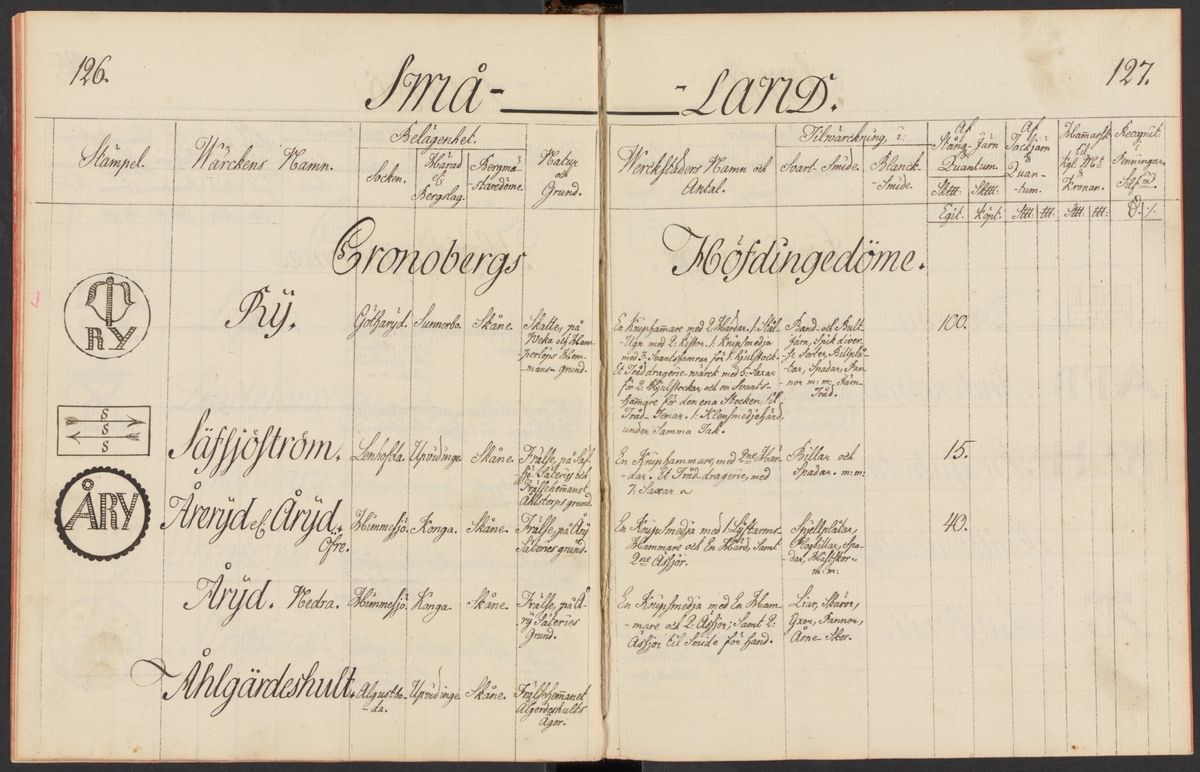 126.
Små-
-Land.
127.
Stämpel.
Wärckens Namn.
Belägenhet.
Socken.
Härad
el.
Bergslag.
Bergmä-
staredöme.
Natur
och
Grund.
Werckstäders Namn och
Antal.
Tilwärckning, i:
Svart-Smide.
Blanck-
-Smide.
Af
Stång-Järn
Quantum.
Af
Tackjärn
Quan-
-tum.
Hamarsk.
til
Kgl. M:t
Kronan.
Recognit:
Penningar.
Egit.
Köpt.
Cronobergs
Höfdingedöme.
RY
Rÿ.
Götharÿd.
Sunnerbo.
Skåne.
Skatte, på
Weka och Ham-
perlöps Hem-
mans-grund.
En Kniphammare med 2. Härdar. 1. Stål-
Ugn med 2: Kistor. 1. Knipsmedja
med 3. Svantshamrar för 1. Hjulstock.
Et Tråddragerie-wärck med 5. Saxar
för 2. Hjulstockar, och en Svants-
hammare för den ena Stocken, til
Tråd-Tenar. 1. Klensmedjehärd,
under Samma Tak.
Band- och Bult-
Järn, Spik äfver-
Sorter, Billplå-
tar, Spadar, Pan-
nor m: m: Järn-
Tråd.
100.
S
S
S
Säfsjöström.
Lenhofda.
Upvidinge
Skåne.
Frälse, på Säf-
sjö Säteries och
Frälsehemanet
Ahlstorps grund.
En Kniphammare, med 2ne Här-
dar. Et Tråddragerie, med
7: Saxar
Billar och
Spadar. m:m:
15.
ÅRY
Årerÿd el. Årÿd.
Öfre.
Himmelsjö.
Konga.
Skåne.
Frälse, på Årÿ
Säteries grund.
En Knipsmedja med 1. Lyftarms-
Hammare och En Härd, Samt
2ne Äsjor.
Spjellplåtar,
Plogbillar, Spa-
dar, Hästskor
m:m:
40.
Årÿd. Nedra.
Himmelsjö
Konga.
Skåne.
Frälse, på Å-
rÿ Säteries
Grund.
En Knipsmedja med En Ham-
-mare och 2: Äsjor; Samt 2:
Äsjor til Smide för hand.
Liar, Skäror,
Yxor, Pannor,
Åsne-Skor.
Åhlgärdeshult.
Algustbo-
da.
Upvidinge
Skåne.
Frälsehemanet
Algerdeshults
Ägor.